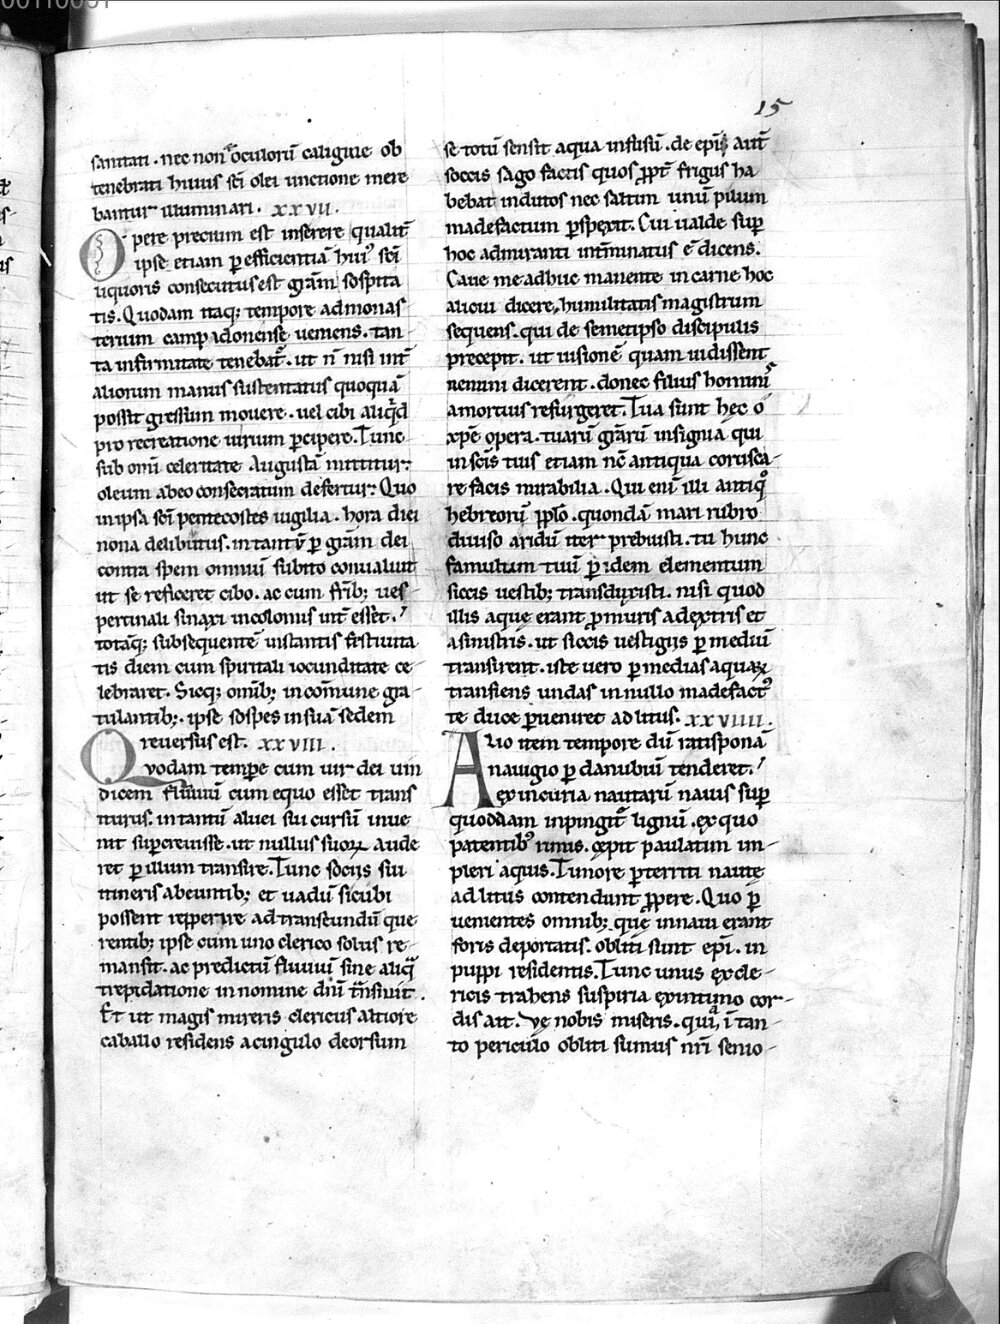 15
sanitati. nec non oculorū caligine ob
tenebrati huius sc̄i olei unctione mere
bantur illuminari. xxvii.
Opere precium est inserere qualit̄
ipse etiam p efficientiā hui9 sc̄i
liquoris consecutus est grām sospita
tis. Quodam itaq; tempore ad monas
terium campidonense veniens. tan
ta infirmitate tenebat᷑. ut n̄ nisi int̄
aliorum manus sustentatus quoquā
possit gressum mouere. uel cibi aliqͥd
pro recreatione uirium pcipere. Tunc
sub om̄i celeritate Augustā mittitur.
oleum ab eo consecratum defertur. Quo
in ipsa sc̄i pentecostes uigilia. hora diei
nona delibutus. in tantū p grām dei
contra spem omniū subito conualuit
ut se reficeret cibo. ac cum frīb; ues-
pertinali sinaxi incolomis int̄esset.
totāq; subsequentē instantis festiuita
tis diem cum spiritali iocunditate ce-
lebraret. Sicq; omīb; in cōmune gra-
tulantib;. ipse sospes in suā sedem
reuersus est. xxviii.
Qvodam tempe cum uir dei uin
dicem fluuiū cum equo esset trans
iturus. in tantū aluei sui cursū inue
nit supcreuisse. ut nullus suoꝝ aude
ret p illum transire. Tunc sociis sui
itineris abeuntib; et uadū sicubi
possent repperire ad transeundū que
rentib; ipse cum uno clerico solus re-
mansit. ac predictū fluuiū sine aliqͣ
trepidatione in nomine dn̄i trānsiuit.
Et ut magis mireris clericus altiore
caballo residens a cingulo deorsum
se totū sensit aqua infusū. de ep̄is aut̄
soccis sago factis quos ꝓpt̄ frigus ha
bebat indutos nec saltim unū pilum
madefactum pspexit. Cui ualde sup
hoc admiranti int̄minatus ē dicens.
Caue me adhuc manente in carne hoc
alicui dicere, humilitatis magistrum
sequens. qui de semetipso discipulis
precepit. ut uisionē quam uidissent
nemini dicerent. donec filius homini9
a mortuis resurgeret. Tua sunt hec o
xp̄e opera. tuarū grārū insignia qui
in sc̄is tuis etiam nc̄ antiqua corusca-
re facis mirabilia. Qui eni illi antiqͦ
hebreorū pplo. quondā mari rubro
diuiso aridū iter prebuisti. tu hunc
famulum tuū p idem elementum
siccis uestib; transduxisti. nisi quod
illis aque erant p muris a dextris et
a sinistris. ut siccis uestigiis p mediū
transirent. iste uero p medias aquaꝝ
transiens undas in nullo madefact9
te duce pueniret ad litus. xxviiii.
Alio item tempore dū ratisponā
nauigio p danubiū tenderet.
ex incuria nautarū nauis sup
quoddam inpingit᷑ lignū. ex quo
patentib9 rimis. cepit paulatim im-
pleri aquis. Timore pterriti naute
ad litus contendunt ppere. Quo p
uenientes omnib; que in naui erant
foris deportatis. obliti sunt ep̄i. in
puppi residentis. Tunc unus ex cle-
ricis trahens suspiria ex intimo cor-
dis ait. Ve nobis miseris. quia ī tan-
to periculo obliti sumus nr̄i senio-